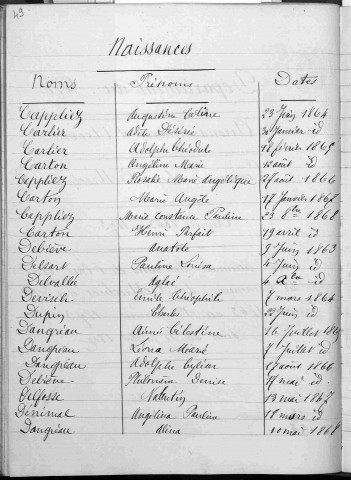 49
Naissances
Noms Prénoms Dates
Cappliez Augustin Celine 23 Juin 1864
Carlier Adèle Désirée 30 Janvier id
Carlier Adolphe Théodule 18 février 1865
Carton Angéline Marie 12 août id
Cappliez Rosalie Marie Angélique 27 août 1866
Carton Marie Angèle 17 Janvier 1868
Cappliez Marie Constance Pauline 23 8bre 1868
Carton Henri Parfait 19 avril id
Debiève Anatole 9 Juin 1863
Delsart Pauline Louisa 4 Juin id
Delvallée Aglaé 4 Xbre id
Devisch Emile Théophile 7 mars 1864
Dupuy Charles 22 Juin id
Dangréau Aimé Célestine 16 Juillet 1865
Dangréau Léona Marie 7 Juillet id
Dangréau Adolphe Cyrien 17 août 1866
Debiève Philomène Denise 17 mai id
Delfosse Valentin 13 mai 1867
Dénimal Angelina Pauline 18 mars id
Dangréau Alina 10 mai 1868